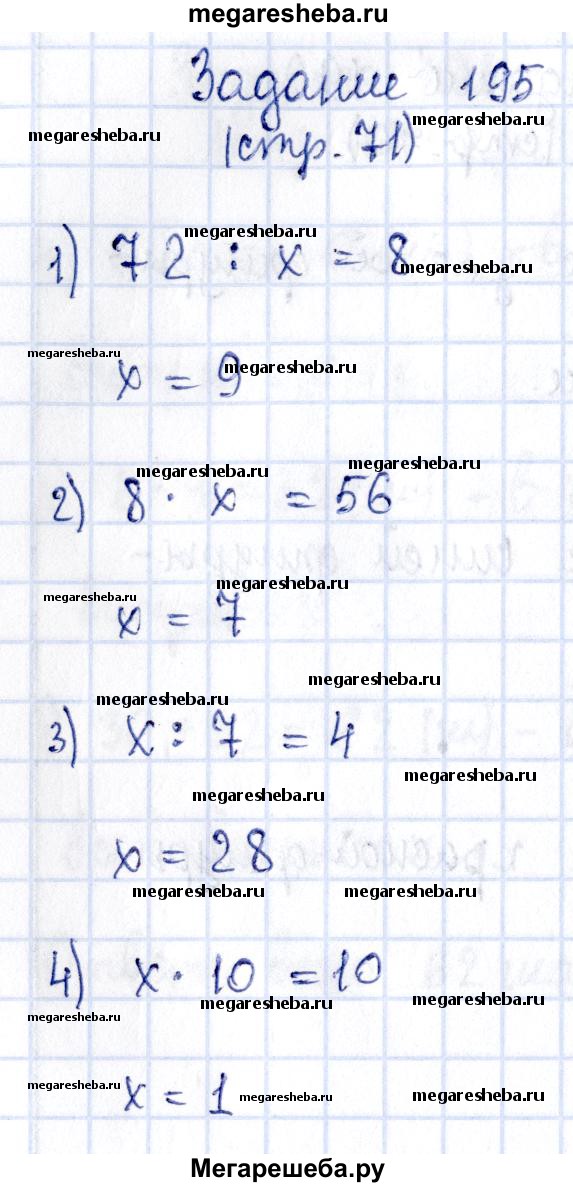 megaresheba.ru
Задание 195
megaresheba.ru megaresheba.ru
(стр. 71)
megaresheba.ru
1) 72 : x = 8
megaresheba.ru
megaresheba.ru megaresheba.ru
x = 9
megaresheba.ru megaresheba.ru
2) 8 · x = 56
megaresheba.ru megaresheba.ru
x = 7
megaresheba.ru
megaresheba.ru
3) x : 7 = 4
megaresheba.ru
megaresheba.ru
x = 28
megaresheba.ru megaresheba.ru
4) x · 10 = 10
megaresheba.ru megaresheba.ru
megaresheba.ru
megaresheba.ru megaresheba.ru megaresheba.ru
x = 1
Мегарешеба.ру